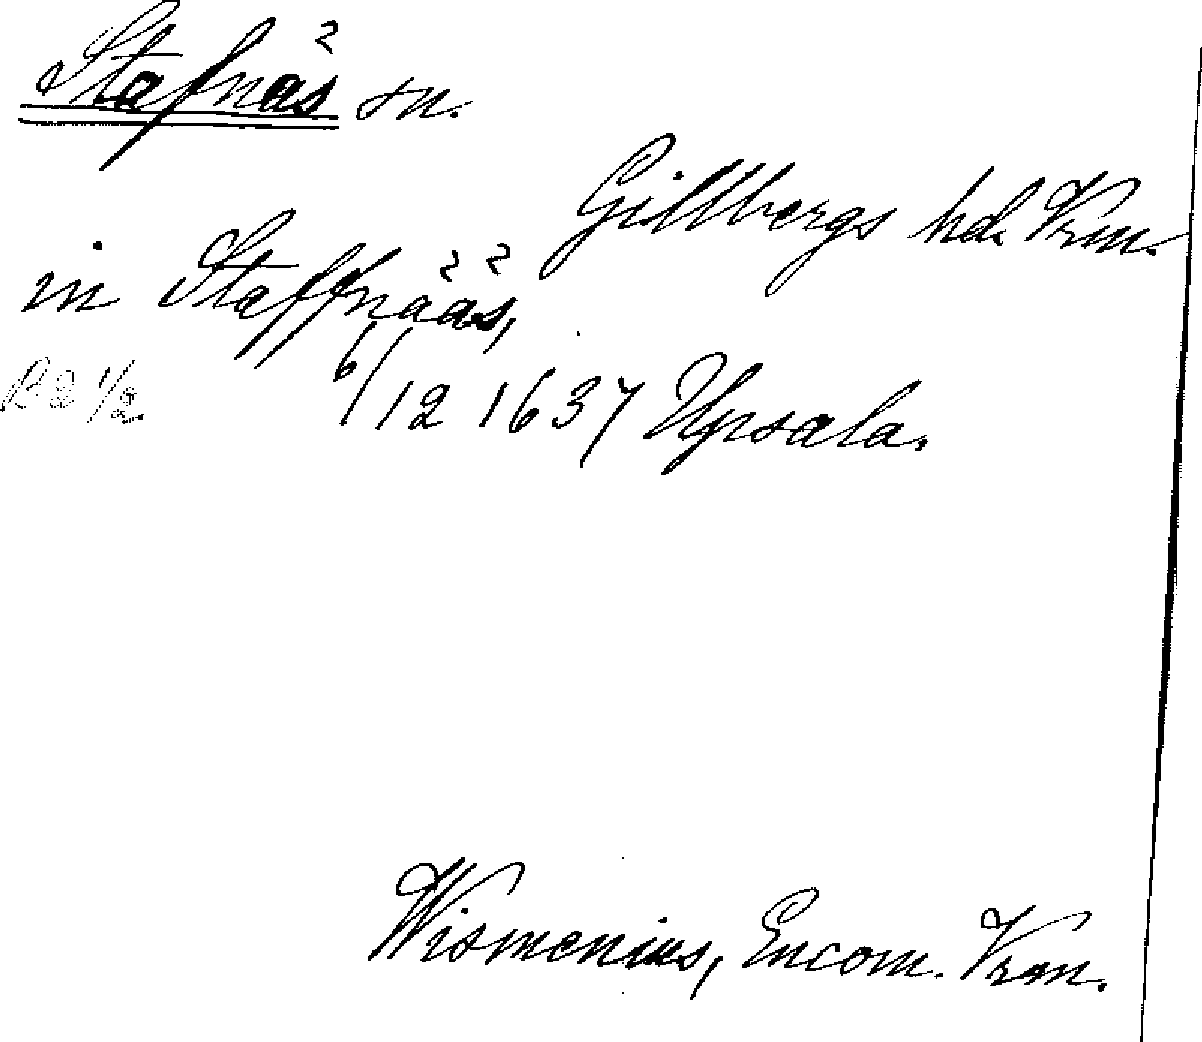 Stafnäs sn.
Gillbergs hd. Vrm.
in Staffnääs,
B2 1/2
6/12 1637 Upsala.
Wismenius, Encom. Vrm.